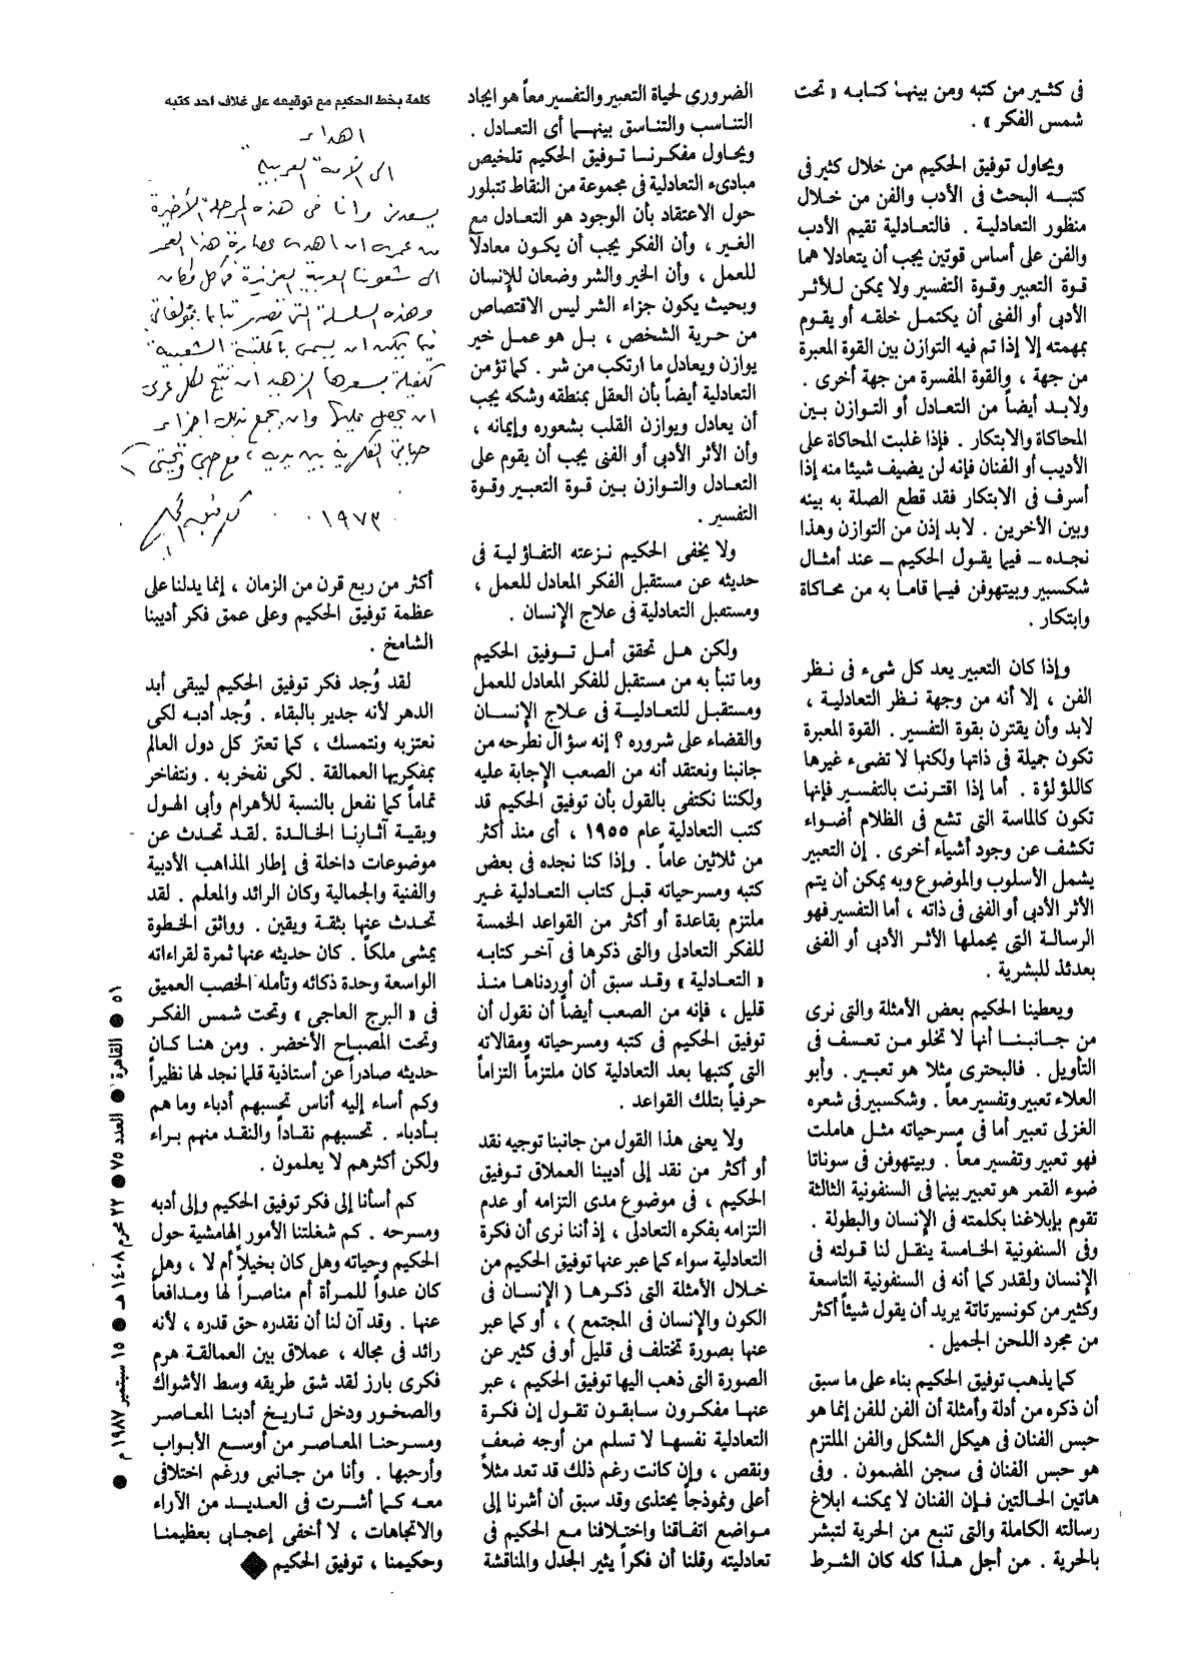 فى كثير من كتبه ومن بينها كتابه « تحت
شمس الفكر » .
ويحاول توفيق الحكيم من خلال كثير فى
كتبـــه البحث فى الأدب والفن من خـــلال
منظور التعادلية . فالتعادلية تقيم الأدب
والفن على أساس قوتين يجب أن يتعادلا هما
قـوة التعبير وقوة التفسير ولا يمكن للأثـر
الأدبى أو الفنى أن يكتمـل خلقـه أو يقـوم
بمهمته إلا إذا تم فيه التوازن بين القوة المعبرة
من جهة ، والقوة المفسرة من جهة أخرى .
ولابد أيضاً من التعـادل أو التـوازن بـين
المحاكاة والابتكار . فإذا غلبت المحاكاة على
الأديب أو الفنان فإنه لن يضيف شيئا منه إذا
أسرف فى الابتكار فقد قطع الصلة به بينه
وبين الأخرين . لابد إذن من التوازن وهذا
نجـده ــ فيما يقـول الحكيم ــ عند أمثـال
شكسبير وبيتهوفن فيـما قامـا به من محـاكاة
وابتكار .
وإذا كان التعبير يعد كل شىء فى نـظر
الفن ، إلا أنه من وجهة نـظر التعادليـة ،
لابد وأن يقترن بقوة التفسير . القوة المعبرة
تكون جميلة فى ذاتها ولكنها لا تضىء غيرها
كاللؤلؤة . أما إذا اقتـرنت بالتفسـير فإنها
تكون كالماسة التى تشع فى الظلام أضـواء
تكشف عن وجود أشياء أخرى . إن التعبير
يشمل الأسلوب والموضوع وبه يمكن أن يتم
الأثر الأدبى أو الفنى فى ذاته ، أما التفسير فهو
الرسالـة التى يحملها الأثـر الأدبى أو الفنى
بعدئذ للبشرية .
ويعطينا الحكيم بعض الأمثلة والتى نرى
من جـانبنـا أنها لا تخلو مـن تعـسف فى
التأويل . فالبحترى مثلا هو تعبـير . وأبو
العلاء تعبير وتفسير معاً . وشكسبير فى شعره
الغزلى تعبير أما فى مسرحياته مثـل هاملت
فهو تعبير وتفسير معاً . وبيتهوفن فى سوناتا
ضوء القمر هو تعبير بينما فى السنفونية الثالثة
تقوم بإبلاغنا بكلمته فى الإنسان والبطولة .
وفى السنفونية الخـامسة ينقـل لنا قـولته فى
الإنسان ولقدر كما أنه فى السنفونية التاسعة
وكثير من كونسيرتاتة يريد أن يقول شيئاً أكثر
من مجرد اللحن الجميل .
كما يذهب توفيق الحكيم بناء على ما سبق
أن ذكره من أدلة وأمثلة أن الفن للفن إنما هو
حبس الفنان فى هيكل الشكل والفن الملتزم
هو حبس الفنان فى سجن المضمون . وفى
هاتين الحـالتين فـإن الفنان لا يمكنـه ابلاغ
رسالته الكاملة والتى تنبع من الحرية لتبشر
بالحرية . من أجل هـذا كله كان الشـرط
الضرورى لحياة التعبير والتفسير معاً هو ايجاد
التناسب والتناسق بينهـما أى التعادل .
ويحاول مفكرنـا تـوفيق الحكيم تلخيص
مبادىء التعادلية فى مجموعة من النقاط تتبلور
حول الاعتقاد بأن الوجود هو التعـادل مـع
الغـير ، وأن الفكر يجب أن يكـون معادلاً
للعمل ، وأن الخير والشر وضعان للإنسان
وبحيث يكون جزاء الشر ليس الاقتصاص
من حرية الشخص ، بـل هو عمـل خير
يوازن ويعادل ما ارتكب من شر . كما تؤمن
التعادلية أيضاً بأن العقل بمنطقه وشكه يجب
أن يعادل ويوازن القلب بشعوره وإيمانه ،
وأن الأثر الأدبى أو الفنى يجب أن يقوم على
التعـادل والتـوازن بـين قـوة التعبـير وقـوة
التفسير .
ولا يخفى الحكيم نـزعته التفـاؤليـة فى
حديثه عن مستقبل الفكر المعادل للعمل ،
ومستقبل التعادلية فى علاج الإنسان .
ولكن هـل تحقق أمـل تـوفيق الحكيم
وما تنبأ به من مستقبل للفكر المعادل للعمل
ومستقبـل للتعـادليـة فى عـلاج الإنسـان
والقضاء على شروره ؟ إنه سؤال نطرحه من
جانبنا ونعتقد أنه من الصعب الإجابة عليه
ولكننا نكتفى بالقول بأن توفيق الحكيم قد
كتب التعادلية عام ١٩٥٥ ، أى منذ أكثر
من ثلاثين عاماً . وإذا كنا نجده فى بعض
كتبه ومسرحياته قبـل كتاب التعـادلية غـير
ملتزم بقاعدة أو أكثر من القواعد الخمسة
للفكر التعادلى والتى ذكرها فى آخـر كتابـه
« التعادلية » وقـد سبق أن أوردناهـا منـذ
قليل ، فإنه من الصعب أيضاً أن نقول أن
توفيق الحكيم فى كتبه ومسرحياته ومقالاته
التى كتبها بعد التعادلية كان ملتزماً التزاماً
حرفياً بتلك القواعد .
ولا يعنى هذا القول من جانبنا توجيه نقد
أو أكثر من نقد إلى أديبنا العملاق تـوفيق
الحكيم ، فى موضوع مدى التزامه أو عدم
التزامه بفكره التعادلى ، إذ أننا نرى أن فكرة
التعادلية سواء كما عبر عنها توفيق الحكيم من
خـلال الأمثلة التى ذكـرهـا ( الإنسان فى
الكون والإنسان فى المجتمع ) ، أو كما عبر
عنها بصورة تختلف فى قليل أو فى كثير عن
الصورة التى ذهب اليها توفيق الحكيم ، عبر
عنهـا مفكـرون سـابقـون تقـول إن فكـرة
التعادلية نفسهـا لا تسلم من أوجه ضعف
ونقص ، وإن كانت رغم ذلك قد تعد مثلاً
أعلى ونموذجاً يحتذى وقد سبق أن أشرنا إلى
مـواضع اتفـاقنا واختـلافنا مـع الحكيم فى
تعادليته وقلنا أن فكراً يثير الجدل والمناقشة
كلمة بخط الحكيم مع توقيعه على غلاف احد كتبه
اهداء
الى الأمة العربية
يسعدنى وأنا فى هذه المرحلة الأخيرة
من عمرى ان اهدى عصارة هذا العمر
الى شعوبنا العربية العزيزة فى كل مكان
وهذه السلسلة التى تصدر تباعا بمؤلفاتى
فيما يمكن ان يسمى بالمكتبة الشعبية
كفيلة بسعرها الزهيد ان تتيح لكل عربى
ان يحصل عليها وان يجمع بذلك اجزاء
حياتى الفكرية بين يديه ، مع حبى وتحيتى
١٩٧٣
توفيق الحكيم
أكثر من ربع قرن من الزمان ، إنما يدلنا على
عظمة توفيق الحكيم وعلى عمق فكر أديبنا
الشامخ .
لقد وُجد فكر توفيق الحكيم ليبقى أبد
الدهر لأنه جدير بالبقاء . وُجد أدبـه لكى
نعتزبه ونتمسك ، كما تعتز كل دول العالم
بمفكريها العمالقة . لكى نفخر به . ونتفاخر
تماماً كما نفعل بالنسبة للأهرام وأبى الهـول
وبقيـة آثـارنـا الخـالـدة . لقـد تحـدث عن
موضوعات داخلة فى إطار المذاهب الأدبية
والفنية والجمالية وكان الرائد والمعلم . لقد
تحـدث عنها بثقـة ويقين . وواثق الخـطوة
يمشى ملكاً . كان حديثه عنها ثمرة لقراءاته
الواسعة وحدة ذكائه وتأمله الخصب العميق
فى « البرج العاجى » وتحت شمس الفكـر
وتحت المصبـاح الأخضر . ومن هنـا كـان
حديثه صادراً عن أستاذية قلما نجد لها نظيراً
وكم أساء إليه أناس تحسبهم أدباء وما هم
بـأدباء . تحسبهم نقـاداً والنقـد منهم بـراء
ولكن أكثرهم لا يعلمون .
كم أسأنا إلى فكر توفيق الحكيم وإلى أدبه
ومسرحه . كم شغلتنا الأمور الهامشية حول
الحكيم وحياته وهل كان بخيلاً أم لا ، وهل
كان عدواً للمرأة أم مناصـراً لها ومـدافعاً
عنها . وقد آن لنا أن نقدره حق قدره ، لأنه
رائد فى مجاله ، عملاق بين العمالقـة هرم
فكرى بارز لقد شق طريقه وسط الأشواك
والصخور ودخل تـاريـخ أدبنـا المعـاصـر
ومسرحنـا المعـاصر من أوسـع الأبـواب
وأرحبها . وأنا من جـانبى ورغم اختلافى
معـه كـما أشـرت فى العـديـد من الآراء
والاتجاهات ، لا أخفى إعجـابى بعظيمنـا
وحكيمنا ، توفيق الحكيم
٥١ ● القاهرة ● العدد ٧٥ ● ٢٢ محرم ١٤٠٨ هـ ● ١٥ سبتمبر ١٩٨٧ م ●